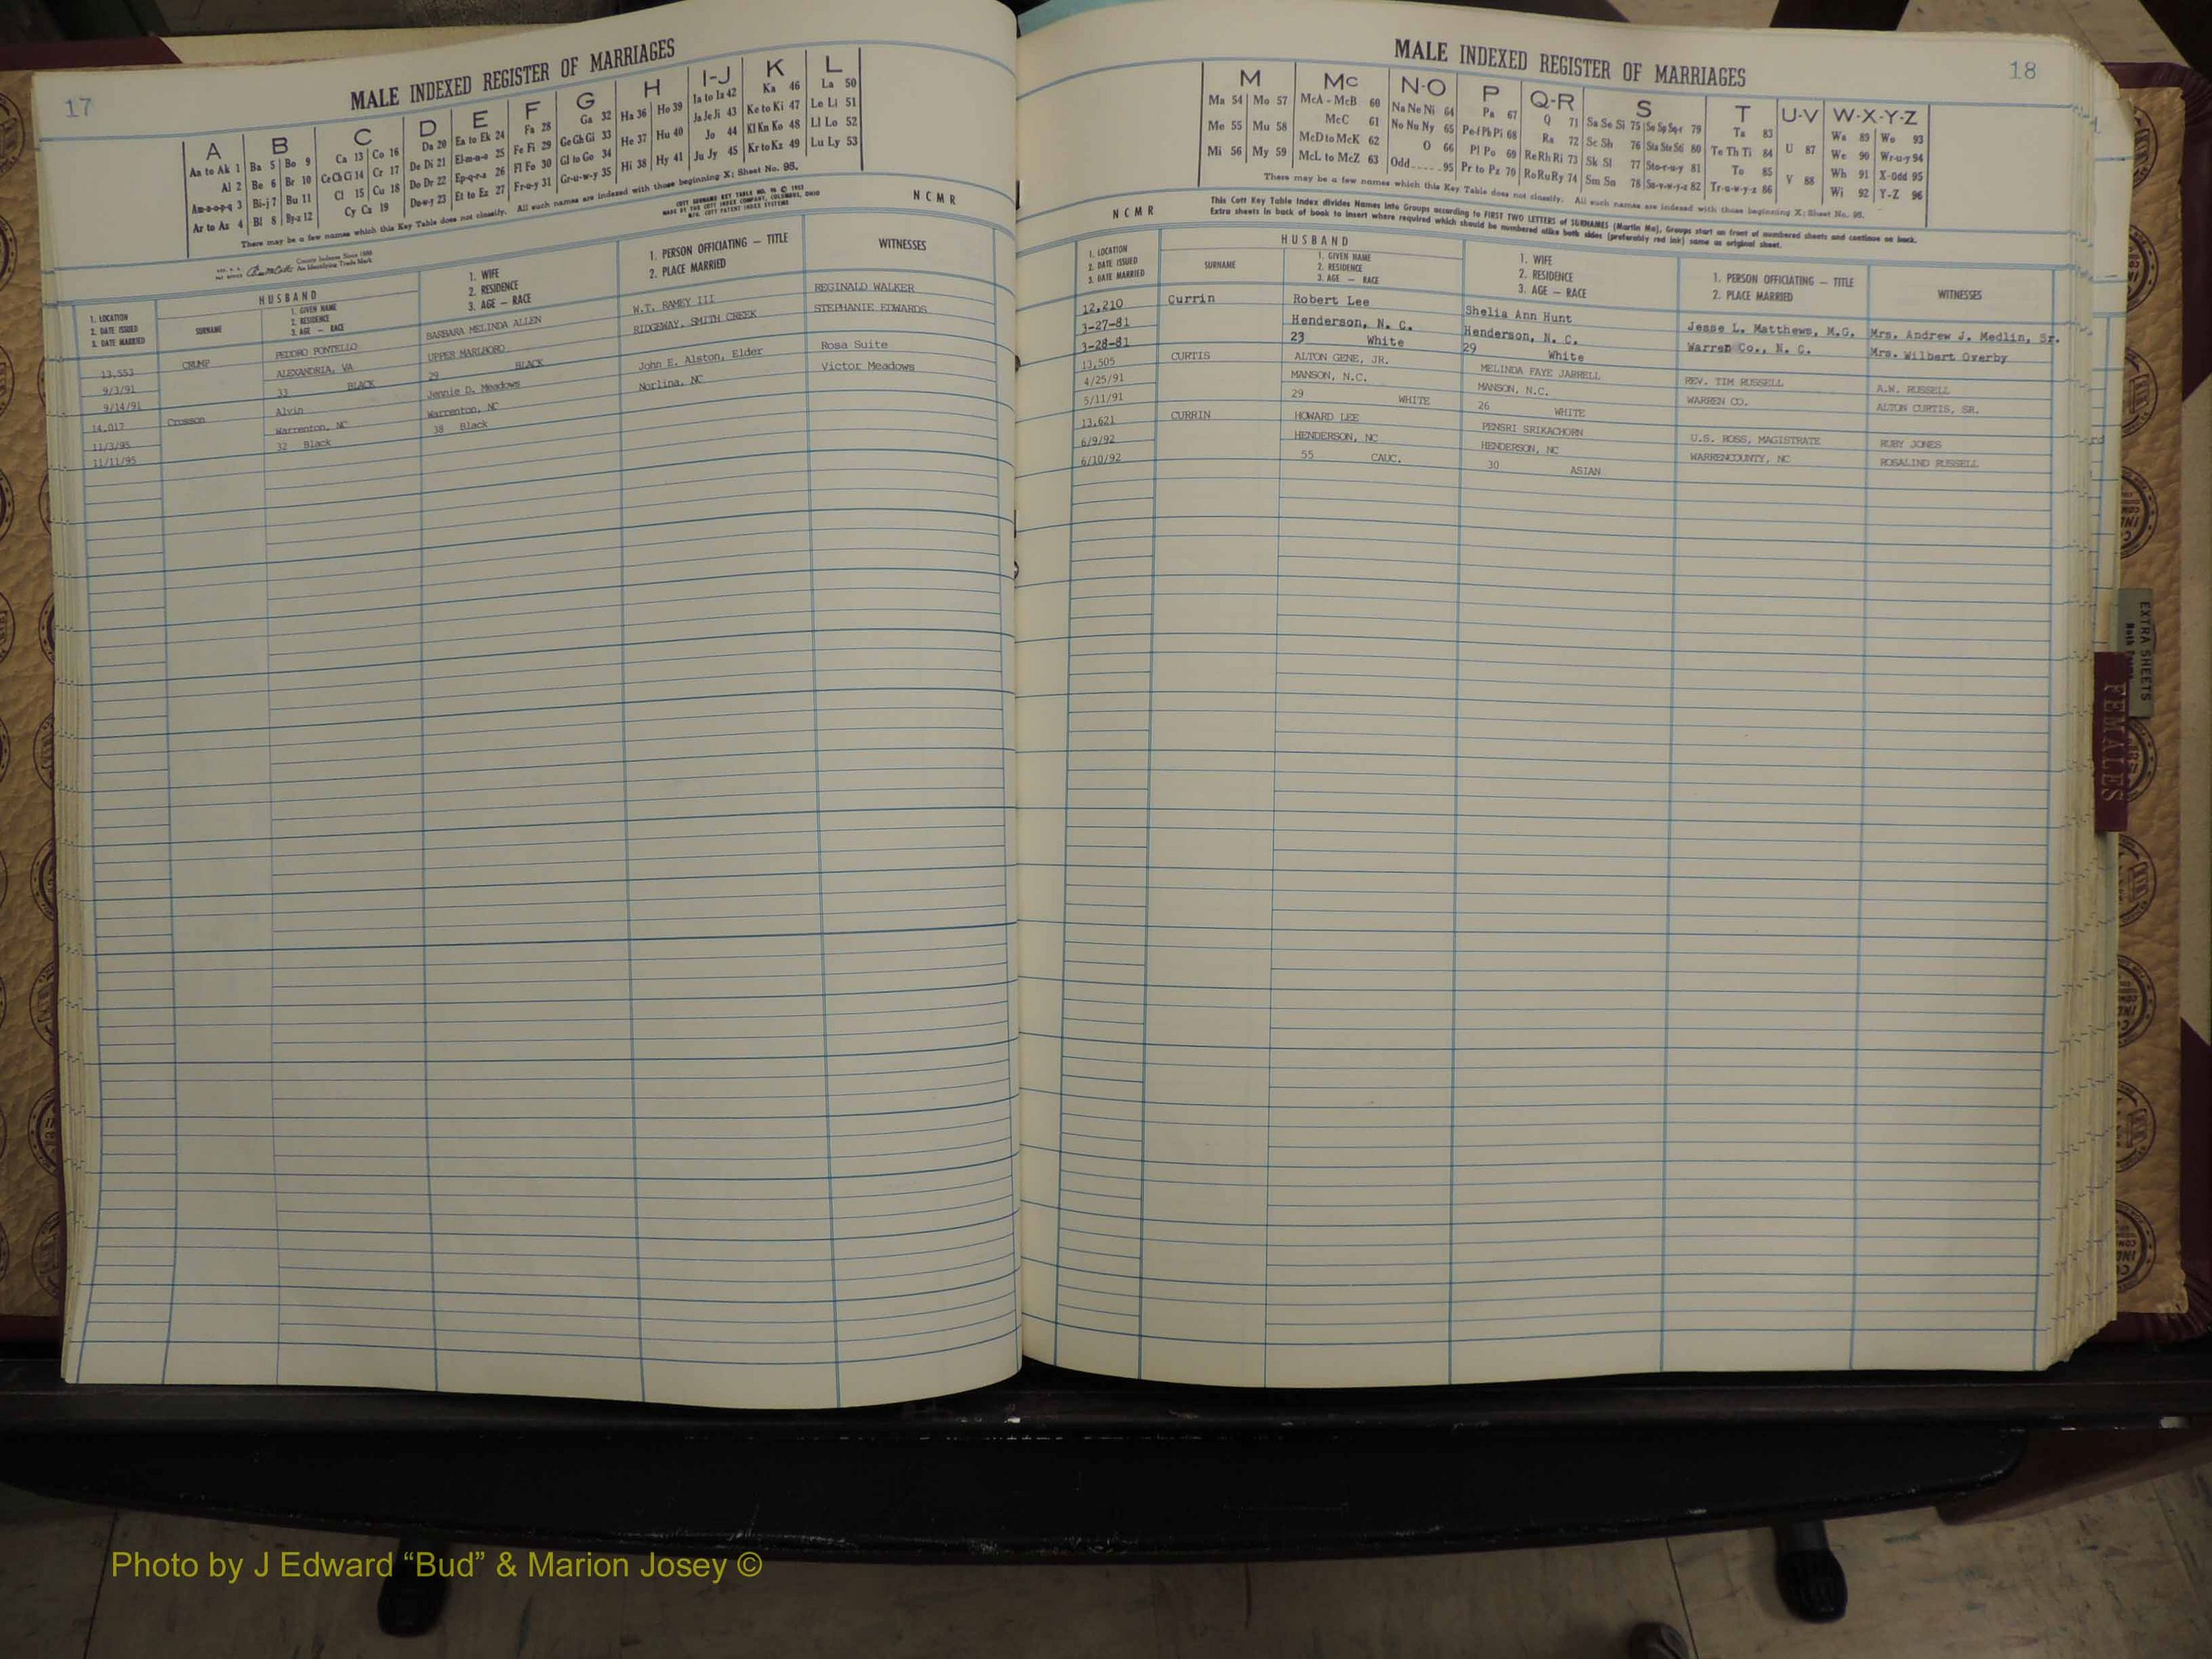 17
MALE INDEXED REGISTER OF MARRIAGES
A B C D E F G H I-J K L
Aa to Ak 1 Ba 5 Bo 9 Ca 13 Co 16 Da 20 Ea to Ek 24 Fa 28 Ga 32 Ha 36 Ho 39 Ia to Iz 42 Ka 46 La 50
Al 2 Be 6 Br 10 Ce Ch Ci 14 Cr 17 De Di 21 El-m-n-o 25 Fe Fi 29 Ge Gh Gi 33 He 37 Hu 40 Ja Je Ji 43 Ke to Ki 47 Le Li 51
Am-n-o-p-q 3 Bi-j 7 Bu 11 Cl 15 Cu 18 Do Dr 22 Ep-q-r-s 26 Fl Fo 30 Gl to Go 34 Hi 38 Hy 41 Jo 44 Kl Kn Ko 48 Ll Lo 52
Ar to Az 4 Bl 8 By-z 12 Cy Cz 19 Du-w-y 23 Et to Ez 27 Fr-u-y 31 Gr-u-w-y 35 Ju Jy 45 Kr to Kz 49 Lu Ly 53
There may be a few names which this Key Table does not classify. All such names are indexed with those beginning X; Sheet No. 95.
COTT SURNAME KEY TABLE NO. 96 © 1952
MADE BY THE COTT INDEX COMPANY, COLUMBUS, OHIO
MFG. COTT PATENT INDEX SYSTEMS
N C M R
County Indexes Since 1888
An Identifying Trade Mark
1. LOCATION
2. DATE ISSUED
3. DATE MARRIED
HUSBAND
SURNAME
1. GIVEN NAME
2. RESIDENCE
3. AGE — RACE
1. WIFE
2. RESIDENCE
3. AGE — RACE
1. PERSON OFFICIATING — TITLE
2. PLACE MARRIED
WITNESSES
13,553 CRUMP PEDDRO PONTELLO BARBARA MELINDA ALLEN W.T. RAMEY III REGINALD WALKER
9/3/91 ALEXANDRIA, VA UPPER MARLBORO RIDGEWAY, SMITH CREEK STEPHANIE EDWARDS
9/14/91 33 BLACK 29 BLACK
14,017 Crosson Alvin Jennie D. Meadows John E. Alston, Elder Rosa Suite
11/3/95 Warrenton, NC Warrenton, NC Norlina, NC Victor Meadows
11/11/95 32 Black 38 Black
18
MALE INDEXED REGISTER OF MARRIAGES
M Mc N-O P Q-R S T U-V W-X-Y-Z
Ma 54 Mo 57 McA - McB 60 Na Ne Ni 64 Pa 67 Q 71 Sa Se Si 75 So Sp Sq-r 79 Ta 83 U 87 Wa 89 Wo 93
Me 55 Mu 58 McC 61 No Nu Ny 65 Pe-f Ph Pi 68 Ra 72 Sc Sh 76 Sta Ste Sti 80 Te Th Ti 84 V 88 We 90 Wr-u-y 94
Mi 56 My 59 McD to McK 62 O 66 Pl Po 69 Re Rh Ri 73 Sk Sl 77 Sto-r-u-y 81 To 85 Wh 91 X-Odd 95
McL to McZ 63 Odd 95 Pr to Pz 70 Ro Ru Ry 74 Sm Sn 78 Su-v-w-y-z 82 Tr-u-w-y-z 86 Wi 92 Y-Z 96
There may be a few names which this Key Table does not classify. All such names are indexed with those beginning X; Sheet No. 95.
This Cott Key Table Index divides Names into Groups according to FIRST TWO LETTERS of SURNAMES (Martin Ma), Groups start on front of numbered sheets and continue on back.
Extra sheets in back of book to insert where required which should be numbered alike both sides (preferably red ink) same as original sheet.
N C M R
1. LOCATION
2. DATE ISSUED
3. DATE MARRIED
HUSBAND
SURNAME
1. GIVEN NAME
2. RESIDENCE
3. AGE — RACE
1. WIFE
2. RESIDENCE
3. AGE — RACE
1. PERSON OFFICIATING — TITLE
2. PLACE MARRIED
WITNESSES
12,210 Currin Robert Lee Shelia Ann Hunt Jesse L. Matthews, M.G. Mrs. Andrew J. Medlin, Sr.
3-27-81 Henderson, N. C. Henderson, N. C. Warren Co., N. C. Mrs. Wilbert Overby
3-28-81 23 White 29 White
13,505 CURTIS ALTON GENE, JR. MELINDA FAYE JARRELL REV. TIM RUSSELL A.W. RUSSELL
4/25/91 MANSON, N.C. MANSON, N.C. WARREN CO. ALTON CURTIS, SR.
5/11/91 29 WHITE 26 WHITE
13,621 CURRIN HOWARD LEE PENSRI SRIKACHORN U.S. ROSS, MAGISTRATE RUBY JONES
6/9/92 HENDERSON, NC HENDERSON, NC WARRENCOUNTY, NC ROSALIND RUSSELL
6/10/92 55 CAUC. 30 ASIAN
EXTRA SHEETS
FEMALES
Photo by J Edward “Bud” & Marion Josey ©